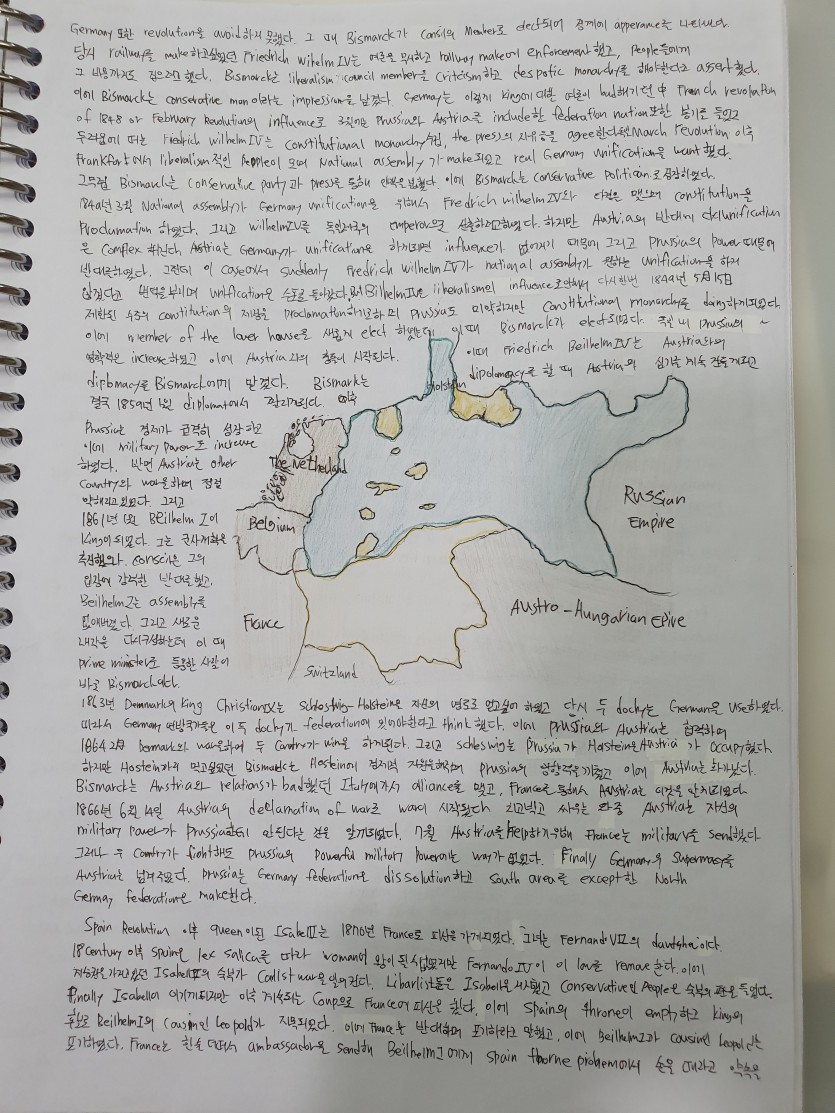 Germany 또한 revolution을 avoid하지 못했다. 그 때 Bismarck가 council의 Member로 선출되어 정계에 apperance를 나타냈다.
당시 railway를 make하고싶었던 Friedrich wihelm IV는 여론을 무시하고 railway make에 enforcement했고, people들에게
그 비용까지도 하였다. Bismarck는 liberalism council member를 criticism하고 despotic monarchy를 해야한다고 assert했다.
이에 Bismarck는 conservative man이라는 impression을 남겼다. Germany는 이렇게 king에 대한 여론이 bad해지던 中 French revolution
of 1848 or February Revolution의 influence로 3월에는 Prussia와 Austria를 include한 federation nation 또한 봉기를 들었고
두려움에 떠는 Fiedrich wilhelm IV는 constitutional monarchy, the press의 자유등을 agree한다. March revolution 이후
Frankfort에서 liberalism적인 people이 모여 National assembly가 make되었고 real German unification을 want했다.
그무렵 Bismarck는 conservative party과 press를 통해 했다. 이에 Bismarck는 conservative politician로 성장하였다.
1849년 3월 National assembly가 Germany unification을 위해서 Fredrich wilhelm IV와 constitution을
Proclamation하였다. 그리고 wilhelm IV를 독일제국의 emperor으로 선출하려고하였다. 하지만 Austria의 반대에 unification
은 complex해진다. Austria는 Germany가 unification을 하게되면 influence가 없어지기 때문에 그리고 Prussia의 Power 때문에
반대를하였다. 그런데 이 case에서 suddenly Fredrich wilhelm IV가 national assembly가 원하는 unification을 하지
않겠다고 unification은 수포로 돌아갔다. liberalism의 influence로 다시한번 1849년 5月 15日
제한된 수준의 constitution의 제정을 Proclamation하기로하며 Prussia도 미약하지만 constitutional monarchy를 doing하게되었다.
이에 member of the lower house를 새롭게 elect하였는데 이때 Bismarck가 elect되었다. Prussia의
영향력은 increase하였고 이에 Austria와의 갈등이 시작된다. 이때 Friedrich Beilhelm IV는 Austria와의
diplomacy를 Bismarck에게 맡겼다. Bismark는 dipolomacy를 할 때 Austria의 심기를 계속 건들게되고
결국 1859년 1월 diplomat에서 잘리게된다. 이후
Prussia는 경제가 급격히 성장하고
이에 military power도 increase
하였다. 반면 Austria는 other
country와 war을하며 점점
약해지고있었다. 그리고
1861년 1月 Beilhelm I이
king이되었다. 그는 군사개혁을
council은 그의
입장에 강력한 반대를 했고,
Beilhelm I는 assembly를
없애버렸다. 그리고 새로운
내각을 다시구성하는데 이 때
prime minister로 등용한 사람이
바로 Bismarck이다.
Holstein
The Netherland
Belgium
France
Switzland
Russian
Empire
Austro-Hungarian Epire
1863년 Denmark의 king Christian IX는 Schleswig-Holstein을 자신의 영토로 먹고싶어 하였고 당시 두 dochy는 German을 use하였다.
따라서 German 연방국가들은 이득 dochy가 federation에 있어야한다고 think했다. 이에 prussia와 Austria는 협력하여
1864 2月 Denmark와 war을하여 두 Country가 win을 하게된다. 그리고 schleswig는 Prussia가 Holstein은 Austria가 occupy했다
하지만 Hostein까지 먹고싶었던 Bismarck는 Hostein에 경제적 지원을해주며 prussia의 영향력을끼쳤고 이에 Austria는 화가났다.
Bismarck는 Austria와 relations가 bad했던 Italy에가서 alliance를 맺고, France를 통해서 Austria는 이것을 알게되었다
1866년 6월 14일 Austria의 declaration of war로 war이 시작됬다 치고박고 싸우는 와중 Austria는 자신의
military power가 Prussia한테 안된다는 것을 알게되었다. 7월 Austria를 help하기위해 France는 military를 send했다
그러나 두 country가 fight해도 prussia의 powerful military power에는 way가 없었다. Finally Germany의 supremacy를
Austria는 넘겨주었다. prussia는 Germany federation을 dissolution하고 south area를 except한 North
Germay federation을 make한다.
Spain Revolution 이후 queen이된 Isabel II는 1870년 France로 피신을가게되었다. 그녀는 Fernando VII의 daughter이다.
18century 이후 spain은 lex salica를 따라 woman이 왕이 될 수 없었지만 Fernando IV이 이 law를 remove한다. 이에
Isabel II의 숙부가 Carlist war을 일으킨다. Libarlist들은 Isabel을 지지했고 conservative인 people은 숙부의 편을 들었다.
Finally Isabel이 이기게되지만 이후 계속되는 coup으로 France에 피신을 했다. 이에 spain의 throne이 empty하고 king의
후보로 Beilhelm I의 cousin인 Leopold가 지목되었다. 이에 France는 반대하며 포기하라고 말했고, 이에 Beilhelm I과 cousin인 Leopold는
포기하였다. France는 한술 더떠서 ambassador을 send해 Beilhelm I에게 spain thorne problem에서 손을 때라고 약속을